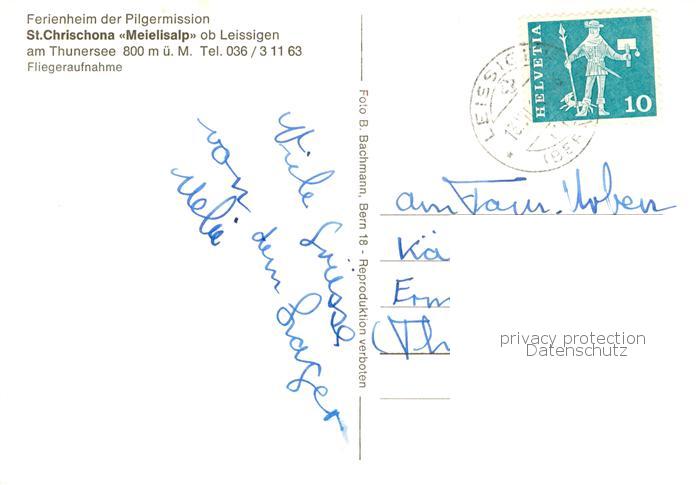 Ferienheim der Pilgermission
St.Chrischona «Meielisalp» ob Leissigen
am Thunersee 800 m ü. M. Tel. 036 / 3 11 63
Fliegeraufnahme
HELVETIA
10
LEISSIGEN
(BERN)
Foto B. Bachmann, Bern 18 - Reproduktion verboten
Viele Grüsse
von dem
Fam.
Kä
Erm
(Th
privacy protection
Datenschutz